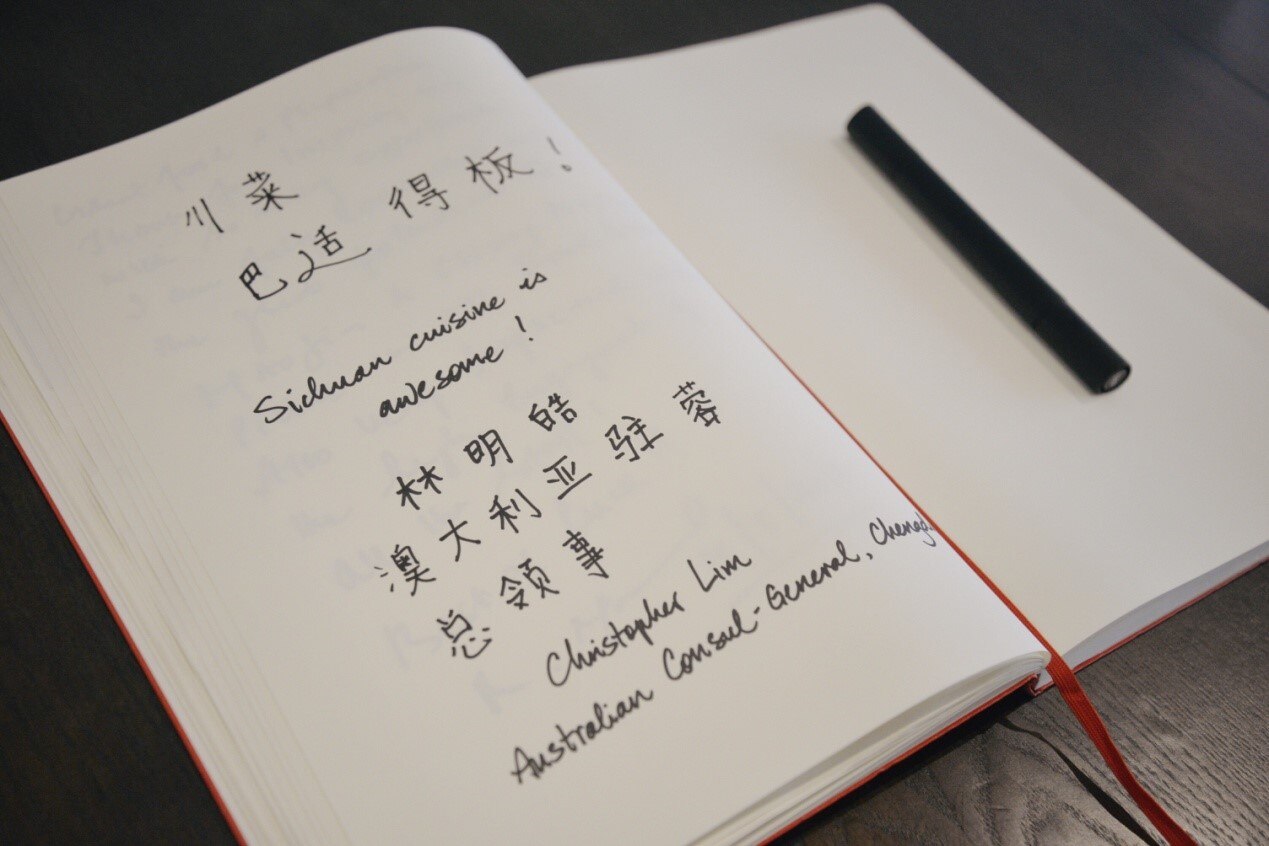 川菜
巴适得板！
Sichuan cuisine is
awesome!
林明皓
澳大利亚驻蓉
总领事
Christopher Lim
Australian Consul-General, Chengd